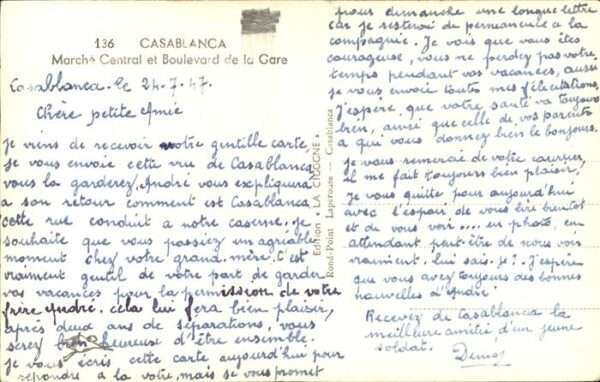 136 CASABLANCA
Marché Central et Boulevard de la Gare
Casablanca. le 24-7-47
Chère petite Amie
Je viens de recevoir votre gentille carte,
je vous envoie cette vue de Casablanca
vous la garderez, André vous expliquera
a son retour comment est Casablanca
cette rue conduit a notre caserne. Je
souhaite que vous passiez un agréable
moment chez votre grand. mère. C'est
vraiment gentil de votre part de garder
vos vacances pour la permission de votre
frère André. cela lui fera bien plaisir,
après deux ans de séparations, vous
serez bien heureuse d'être ensemble.
Je vous écris cette carte aujourd'hui pour
répondre a la votre, mais se vous promet
Edition "LA CIGOGNE"
Rond-Point Lapeyrouse — Casablanca
pour dimanche une longue lettre
car je resterai de permanence a la
compagnie. Je vois que vous êtes
courageuse, vous ne perdez pas votre
temps pendant vos vacances, aussi
je vous envoie toutes mes félicitations,
J'espère que votre santé va toujours
bien, ainsi que celle de vos parents
a qui vous donnez bien le bonjour.
je vous remerci de votre courrier,
il me fait toujours bien plaisir,
Je vous quitte pour aujourd'hui
avec l'espoir de vous lire bientot
et de vous voir.... en photo, en
attendant peut-être de nous voir
vraiment. lui sais-je? J'espère
que vous avez toujours des bonnes
nouvelles d'André
Recevez de Casablanca la
meilleure amitié d'un jeune
soldat.
Denis